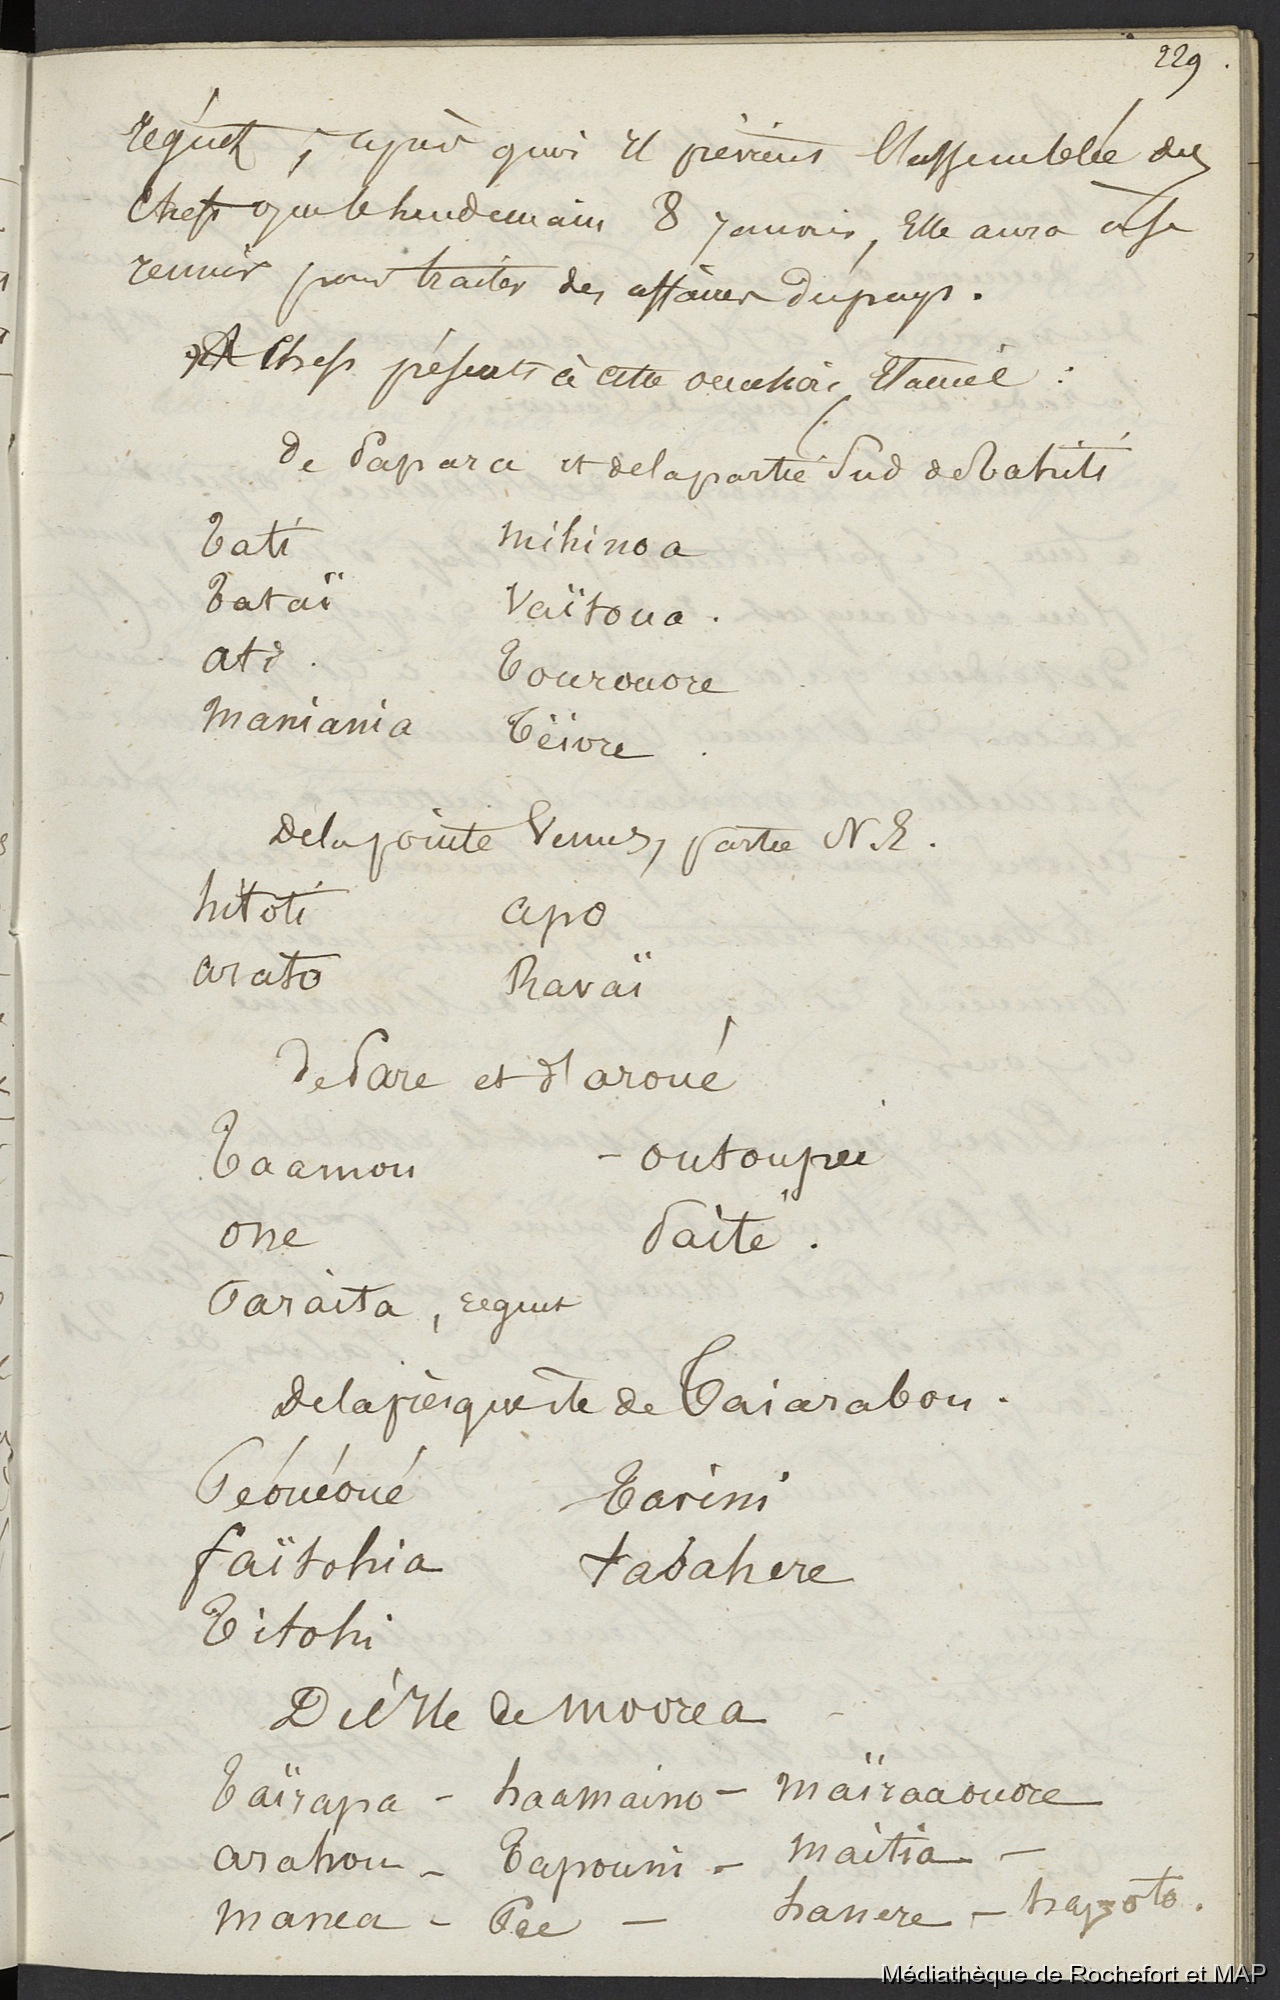 229
régent, après quoi il prévient l'assemblée des
Chefs que le lendemain 8 janvier, Elle aura à se
reunir pour traiter des affaires du pays.
Chefs présents à cette occasion, Etaient :
De Papara et de la partie Sud de Tahiti
Tati mihinoa
Tataï Vaïtoua.
ati. Tourouore
maniania Tëivre.
de la pointe Venus, partie N.E.
hitoti apo
arato Ravaï
de Pare et d'aroué
Taamou - outoupu
one Païte.
Paraita, régent
de la presqu'île de Taiarabou.
Péouéoué Tarini
faïtohia tavahere
Titohi
De l'Ile de moorea
Taïrapa - haamaino - maïraaouore
arahou - Tapouni - maitia -
manea - Pee - hanere - hapoto.
Médiathèque de Rochefort et MAP